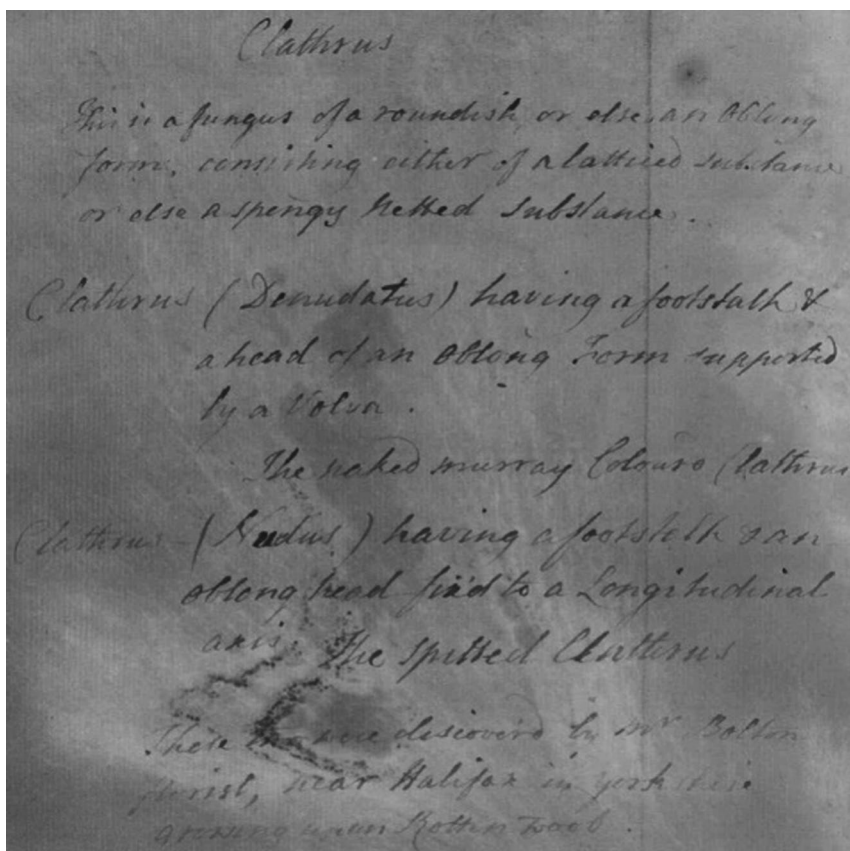 Clathrus
This is a fungus of a roundish, or else, an oblong
form, consisting either of a latticed substance
or else a spongy Netted substance.
Clathrus (Denudatus) having a footstalk &
a head of an oblong Form supported
by a Volva.
The naked murray Colour'd Clathrus
Clathrus - (Nudus) having a footstalk & an
oblong head fix'd to a Longitudinal
axis. The Spitted Clathrus
These two were discover'd by Mr Bolton
florist, near Halifax in yorkshire
growing upon Rotten wood.